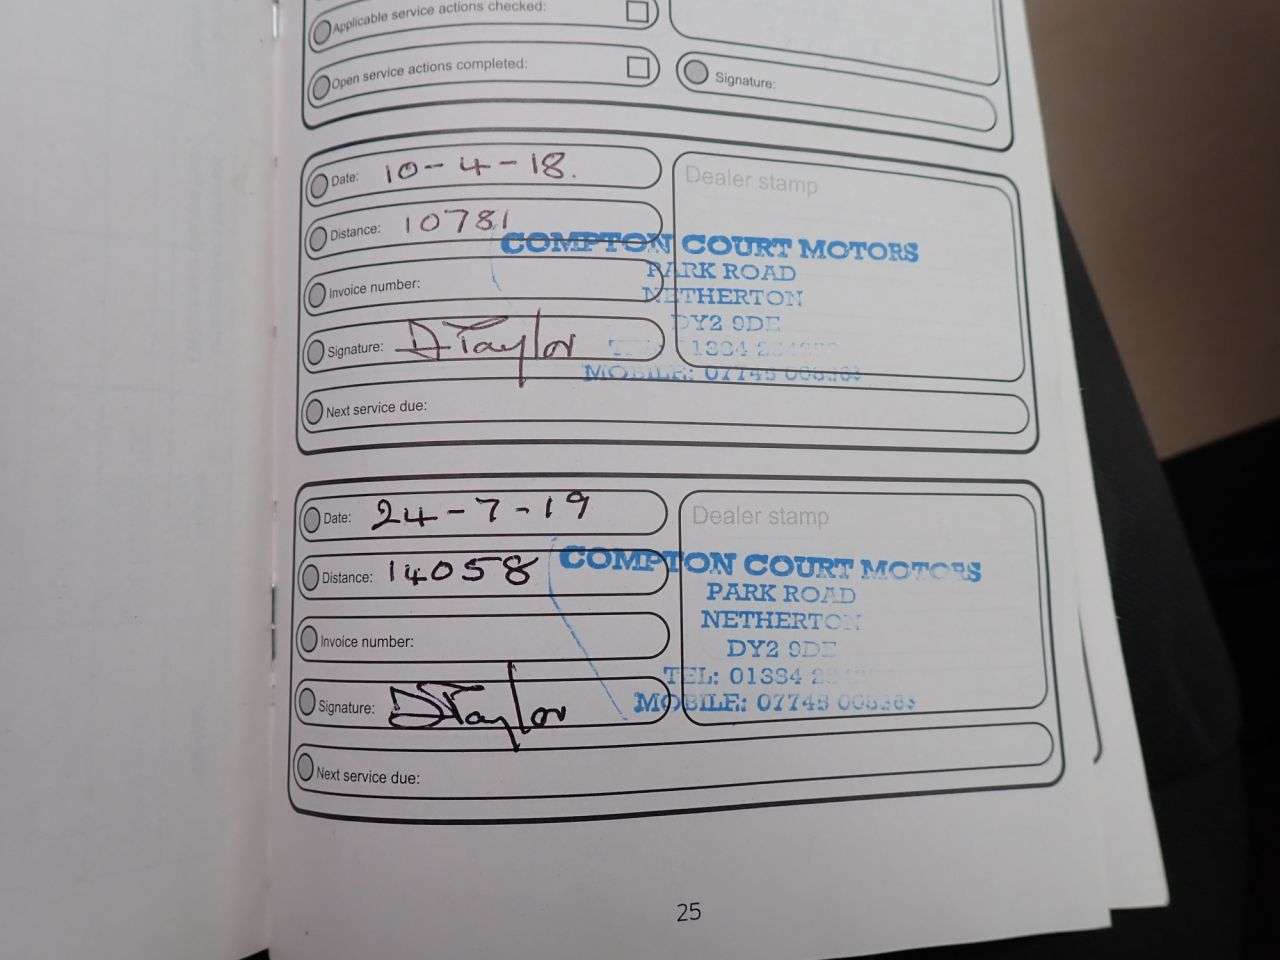 Applicable service actions checked:
Open service actions completed:
Signature:
Date: 10-4-18.
Dealer stamp
Distance: 10781
COMPTON COURT MOTORS
PARK ROAD
Invoice number:
NETHERTON
DY2 9DE
Signature: D Taylor
TEL: 01384
MOBILE: 07745
Next service due:
Date: 24-7-19
Dealer stamp
Distance: 14058
COMPTON COURT MOTORS
PARK ROAD
NETHERTON
Invoice number:
DY2 9DE
TEL: 01384
Signature: D Taylor
MOBILE: 07745
Next service due:
25